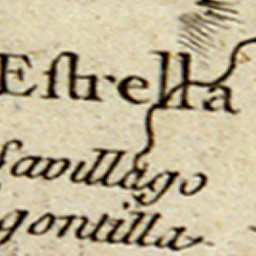 Eſtrella
ſavillago
gontilla